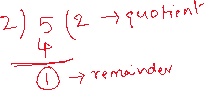 2) 5 (2 → quotient
4
① → remainder